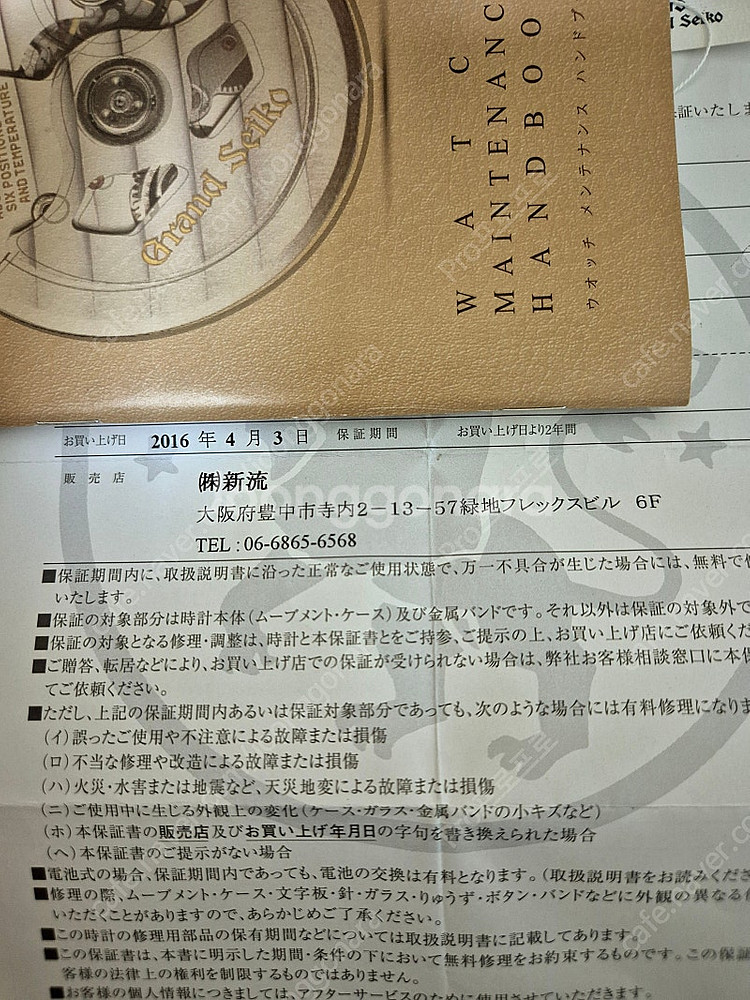 Grand Seiko
SIX POSITIONS
AND TEMPERATURE
Grand Seiko
WATC
MAINTENANC
HANDBOO
ウオッチ メンテナンス ハンドブ
証いたしま
お買い上げ日 2016 年 4 月 3 日 保証期間 お買い上げ日より2年間
販売店 ㈱新流
大阪府豊中市寺内2-13-57緑地フレックスビル 6F
TEL : 06-6865-6568
■保証期間内に、取扱説明書に沿った正常なご使用状態で、万一不具合が生じた場合には、無料で
いたします。
■保証の対象部分は時計本体(ムーブメント・ケース)及び金属バンドです。それ以外は保証の対象外で
■保証の対象となる修理・調整は、時計と本保証書とをご持参、ご提示の上、お買い上げ店にご依頼くだ
■ご贈答、転居などにより、お買い上げ店での保証が受けられない場合は、弊社お客様相談窓口に本保
てご依頼ください。
■ただし、上記の保証期間内あるいは保証対象部分であっても、次のような場合には有料修理になりま
(イ)誤ったご使用や不注意による故障または損傷
(ロ)不当な修理や改造による故障または損傷
(ハ)火災・水害または地震など、天災地変による故障または損傷
(ニ)ご使用中に生じる外観上の変化(ケース・ガラス・金属バンドの小キズなど)
(ホ)本保証書の販売店及びお買い上げ年月日の字句を書き換えられた場合
(ヘ)本保証書のご提示がない場合
■電池式の場合、保証期間内であっても、電池の交換は有料となります。(取扱説明書をお読みくださ
■修理の際、ムーブメント・ケース・文字板・針・ガラス・りゅうず・ボタン・バンドなどに外観の異なる
いただくことがありますので、あらかじめご了承ください。
■この時計の修理用部品の保有期間などについては取扱説明書に記載してあります。
■この保証書は、本書に明示した期間・条件の下において無料修理をお約束するものです。この保証
客様の法律上の権利を制限するものではありません。
■お客様の個人情報につきましては、アフターサービスのために使用させていただきます。
monggonara
cafe.naver.com